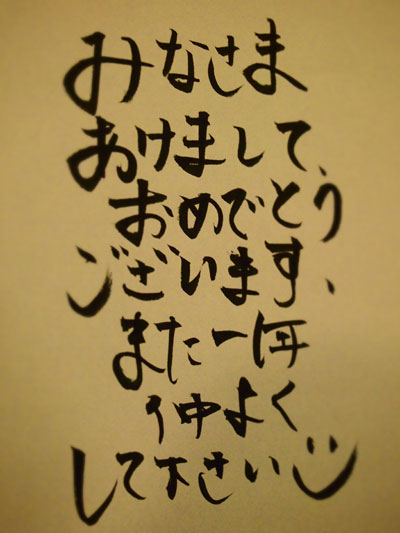 みなさま
あけまして、
おめでとう
ございます、
また一年
仲よく
して下さい